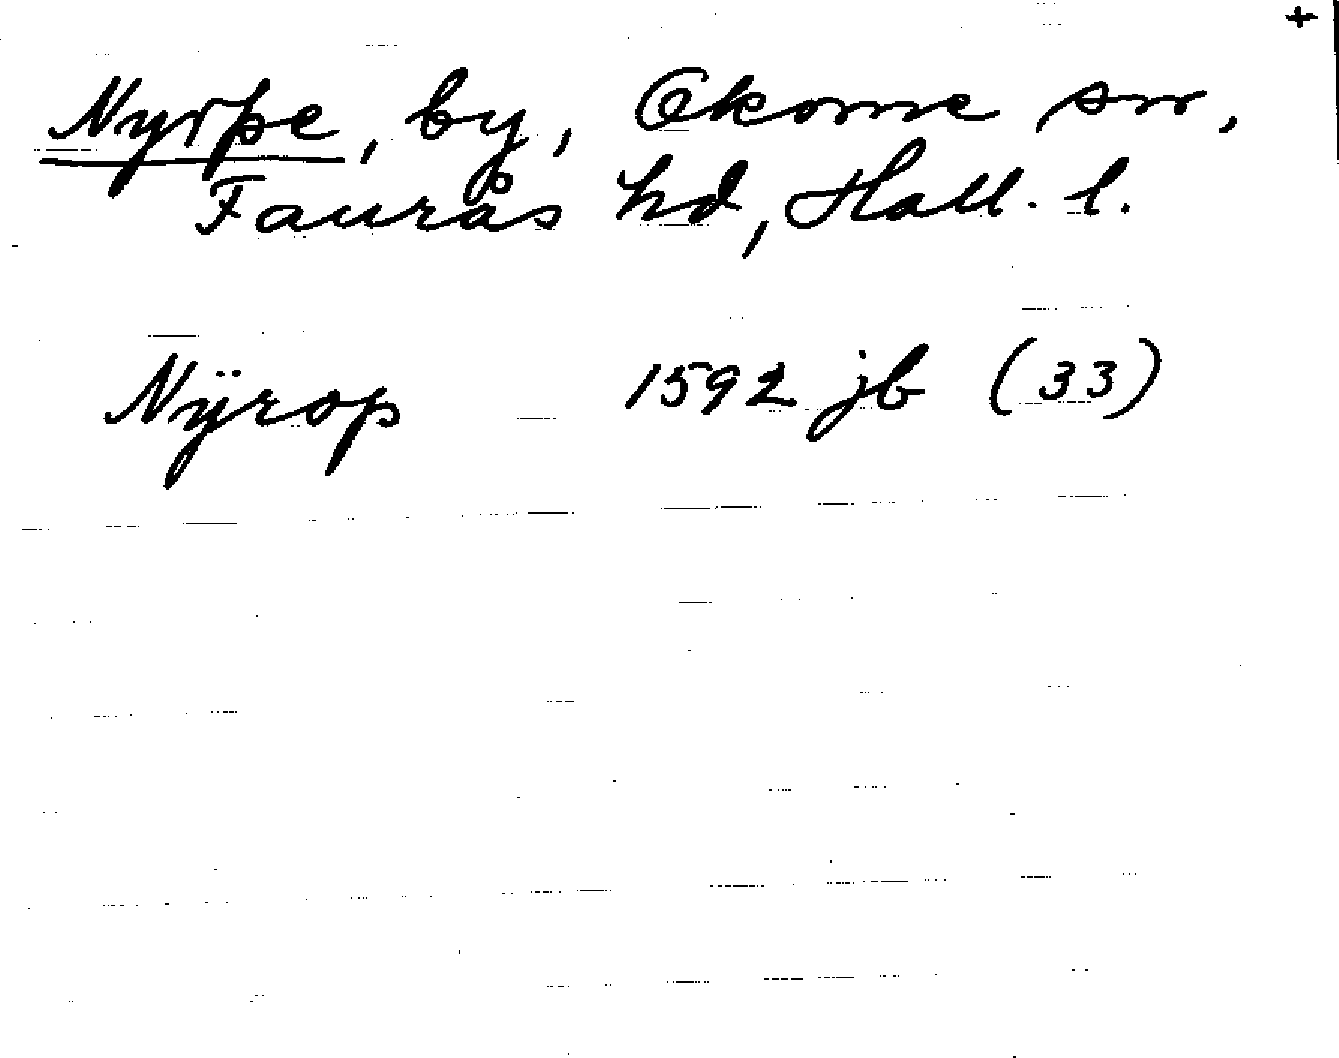 +
Nyrpe, by, Okome sn,
Faurås hd, Hall. l.
Nÿrop 1592 jb (33)